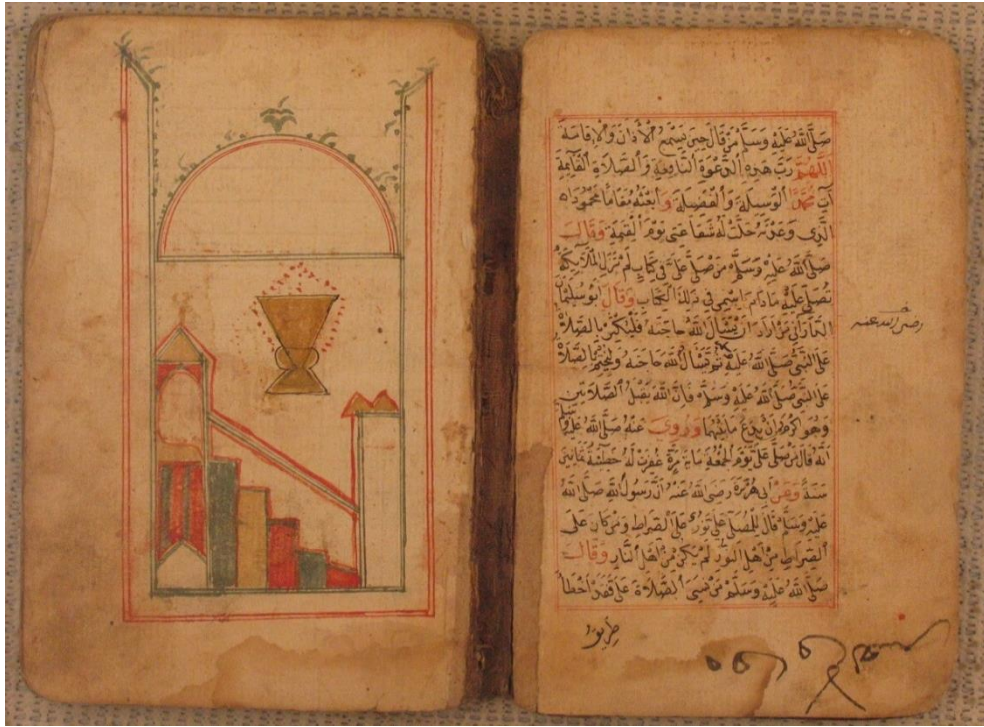 صَلَّى اللَّهُ عَلَيْهِ وَسَلَّمَ مَنْ قَالَ حِينَ يَسْمَعُ الْأَذَانَ وَالْإِقَامَةَ
اللَّهُمَّ رَبَّ هَذِهِ الدَّعْوَةِ النَّافِعَةِ وَالصَّلَاةِ الْقَايِمَةِ
آتِ مُحَمَّدًا الْوَسِيلَةَ وَالْفَضِيلَةَ وَابْعَثْهُ مَقَامًا مَحْمُودًا
الَّذِي وَعَدْتَهُ حَلَّتْ لَهُ شَفَاعَتِي يَوْمَ الْقِيَمَةِ وَقَالَ
صَلَّى اللَّهُ عَلَيْهِ وَسَلَّمَ مَنْ صَلَّى عَلَيَّ فِي كِتَابٍ لَمْ تَزَلِ الْمَلَآئِكَةُ
تُصَلِّي عَلَيْهِ مَا دَامَ اسْمِي فِي ذَلِكَ الْكِتَابِ وَقَالَ أَبُو سُلَيْمَانَ
الدَّارَانِي مَنْ أَرَادَ أَنْ يَسْأَلَ اللَّهَ حَاجَتَهُ فَلْيُكْثِرْ بِالصَّلَاةِ
عَلَى النَّبِيِّ صَلَّى اللَّهُ عَلَيْهِ ثُمَّ يَسْأَلُ اللَّهَ حَاجَتَهُ وَلْيَخْتِمْ بِالصَّلَاةِ
عَلَى النَّبِيِّ صَلَّى اللَّهُ عَلَيْهِ وَسَلَّمَ فَإِنَّ اللَّهَ يَقْبَلُ الصَّلَاتَيْنِ
وَهُوَ أَكْرَمُ أَنْ يَدَعَ مَا بَيْنَهُمَا وَرُوِيَ عَنْهُ صَلَّى اللَّهُ عَلَيْهِ وَسَلَّمَ
أَنَّهُ قَالَ مَنْ صَلَّى عَلَيَّ يَوْمَ الْجُمْعَةِ مِايَةَ مَرَّةٍ غُفِرَتْ لَهُ خَطِيئَةُ ثَمَانِينَ
سَنَةً وَعَنْ أَبِي هُرَيْرَةَ رَضِيَ اللَّهُ عَنْهُ أَنَّ رَسُولَ اللَّهِ صَلَّى اللَّهُ
عَلَيْهِ وَسَلَّمَ قَالَ لِلْمُصَلِّي عَلَيَّ نُورٌ عَلَى الصِّرَاطِ وَمَنْ كَانَ عَلَى
الصِّرَاطِ مِنْ أَهْلِ النُّورِ لَمْ يَكُنْ مِنْ أَهْلِ النَّارِ وَقَالَ
صَلَّى اللَّهُ عَلَيْهِ وَسَلَّمَ مَنْ نَسِيَ الصَّلَاةَ عَلَيَّ فَقَدْ أَخْطَأَ
طريق
رضي الله عنه